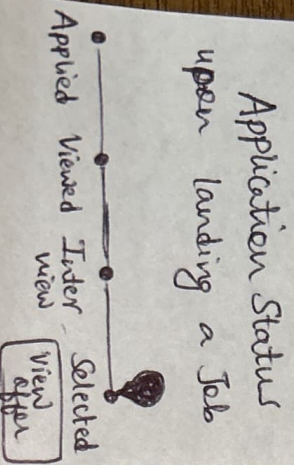 Application Status
upon landing a Job
Applied Viewed Inter- Selected
view
View
offer